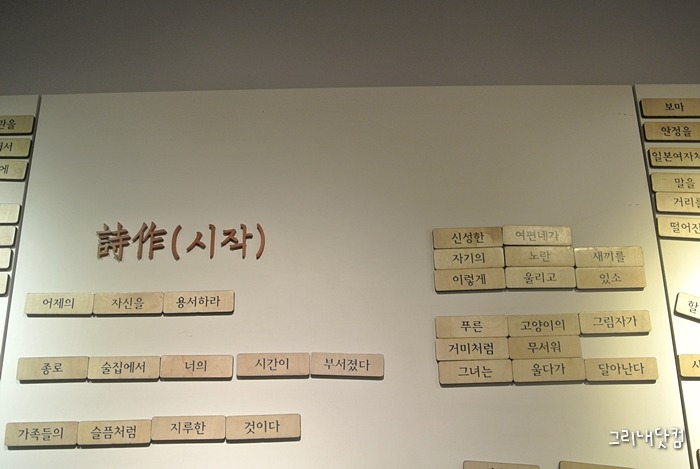 詩作(시작)
어제의 자신을 용서하라
종로 술집에서 너의 시간이 부서졌다
가족들의 슬픔처럼 지루한 것이다
신성한 여편네가
자기의 노란 새끼를
이렇게 울리고 있소
푸른 고양이의 그림자가
거미처럼 무서워
그녀는 울다가 달아난다
보마
안정을
말을
그리내닷컴